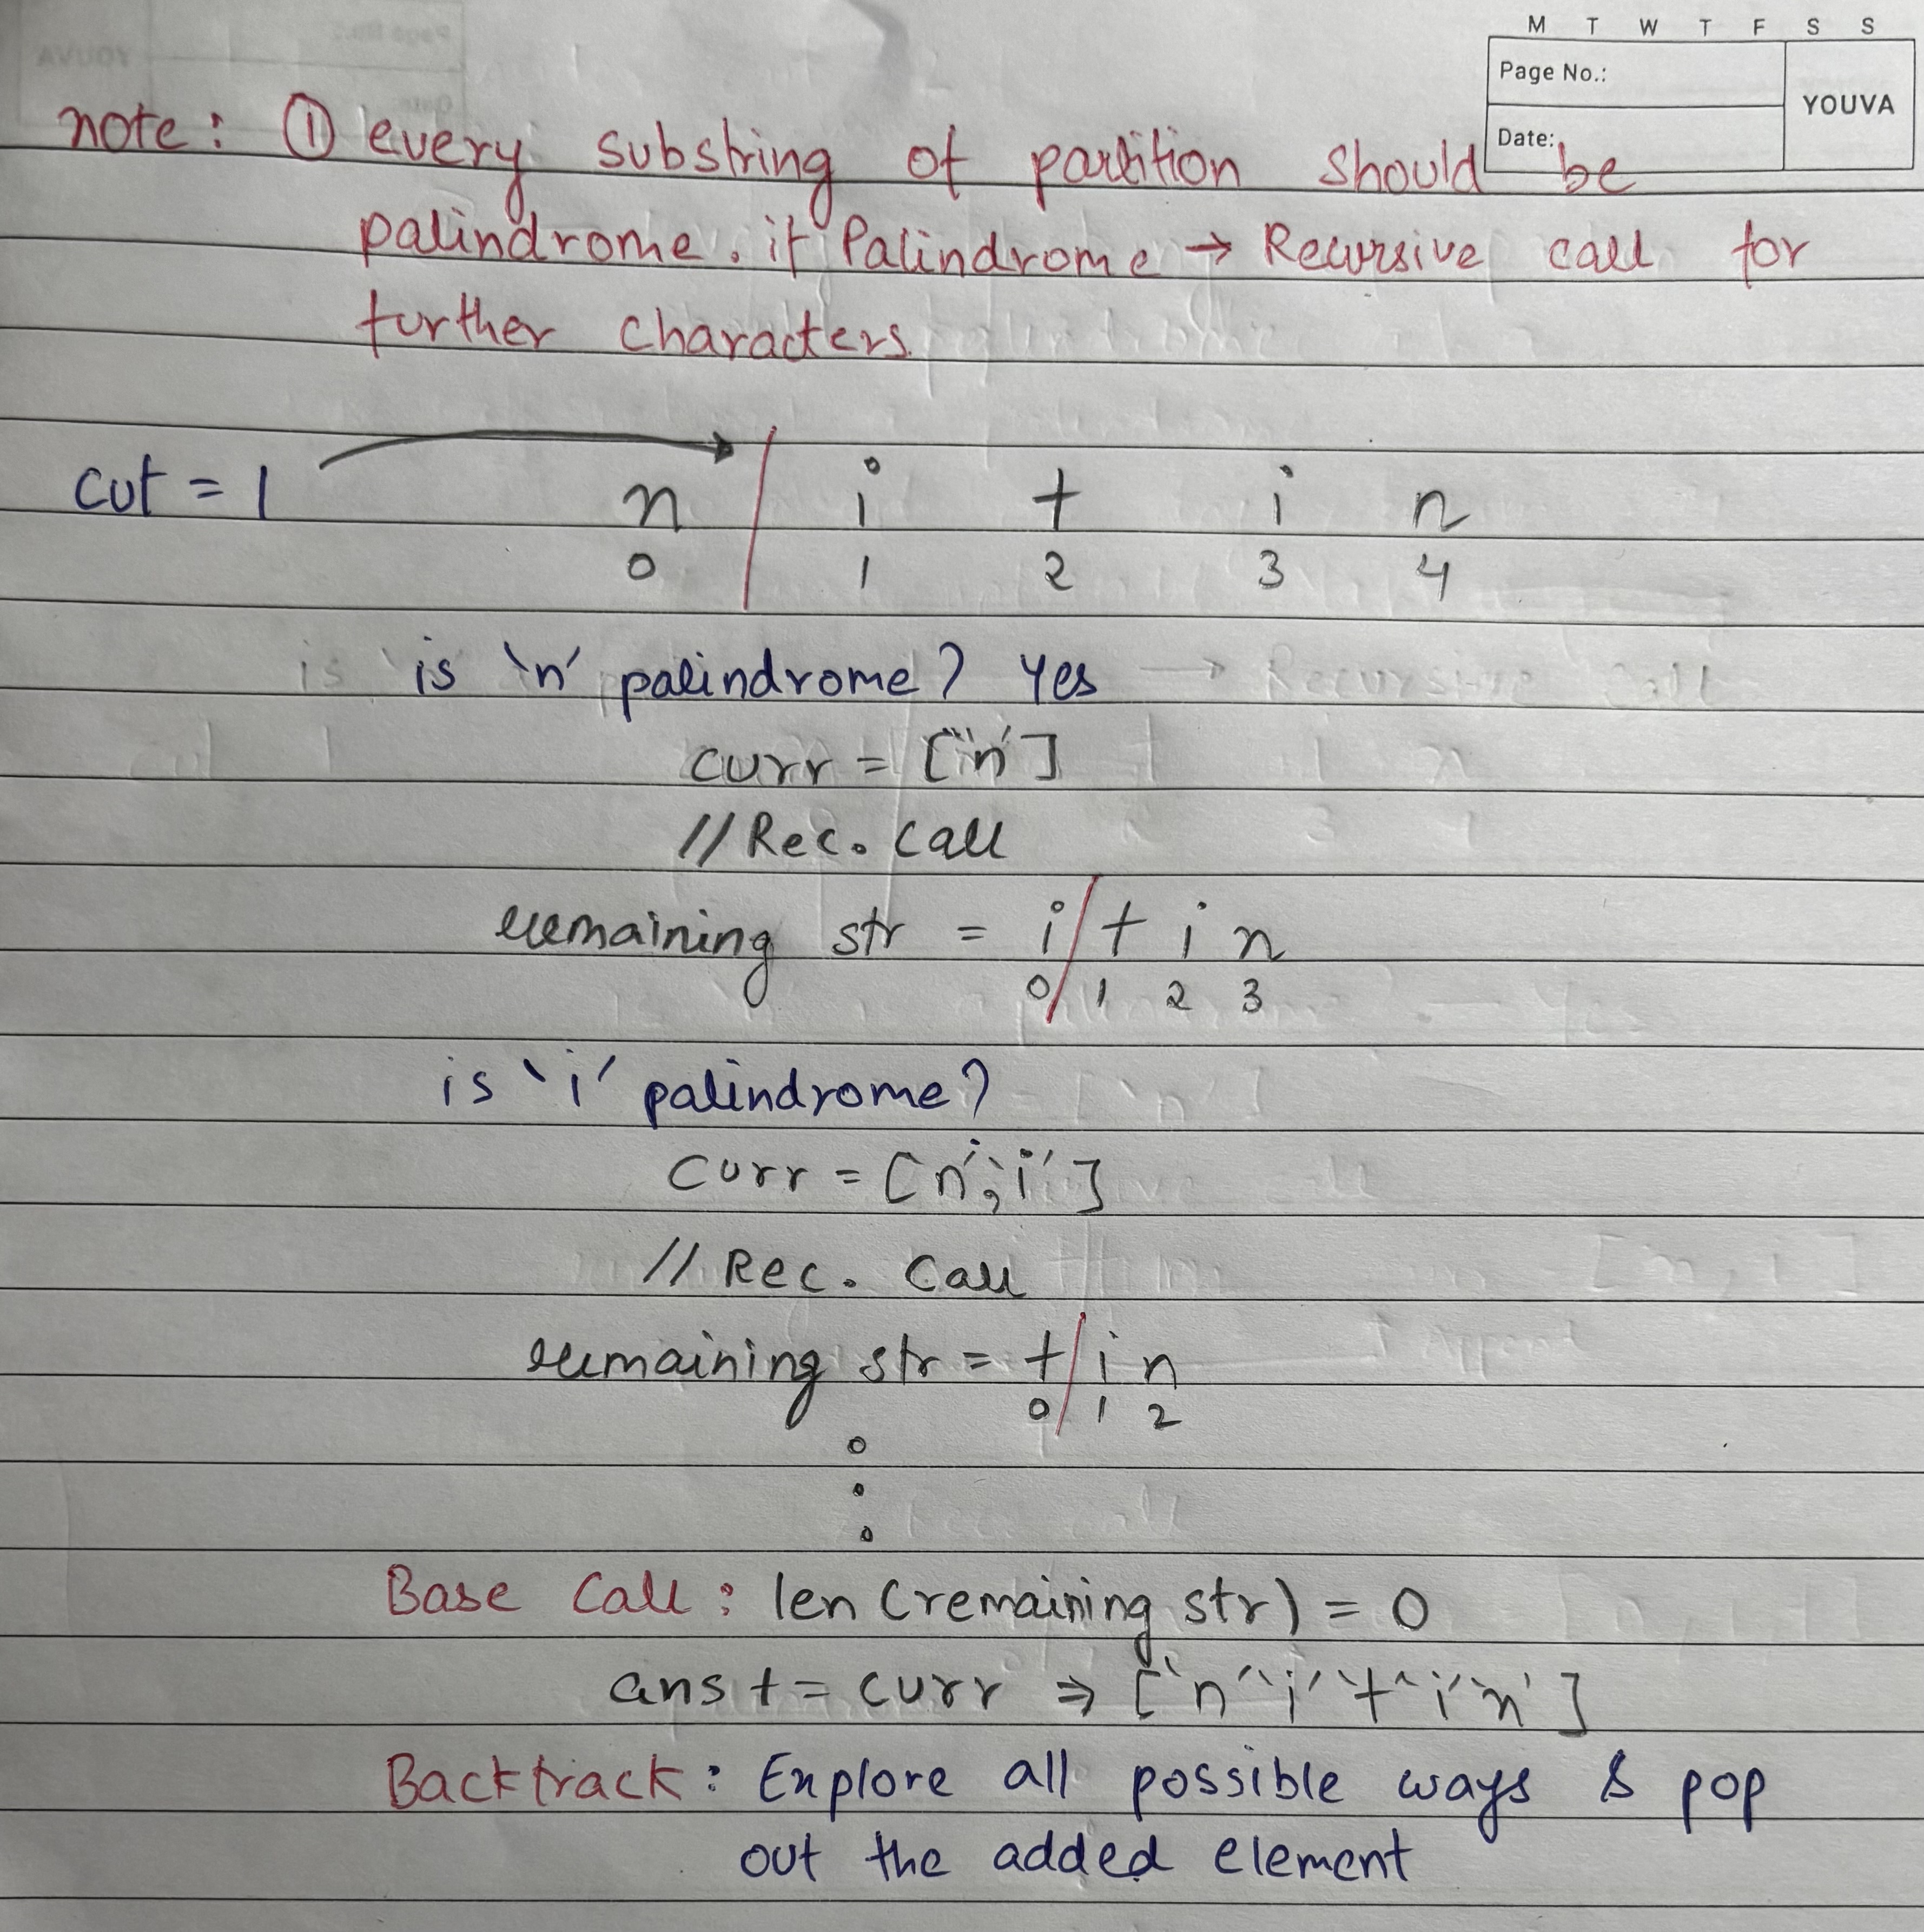 M T W T F S S
Page No.:
YOUVA
Date:
note: ① every substring of partition should be
palindrome. if Palindrome → Recursive call for
further characters.
cut = 1 n | i t i n
0 1 2 3 4
is 'n' palindrome? Yes
curr = ['n']
// Rec. call
remaining str = i / t i n
0 / 1 2 3
is 'i' palindrome?
curr = [n', 'i']
// Rec. Call
remaining str = t / i n
0 / 1 2
Base Call: len (remaining str) = 0
ans += curr ⇒ ['n' 'i' 't' 'i' 'n']
Backtrack: Explore all possible ways & pop
out the added element